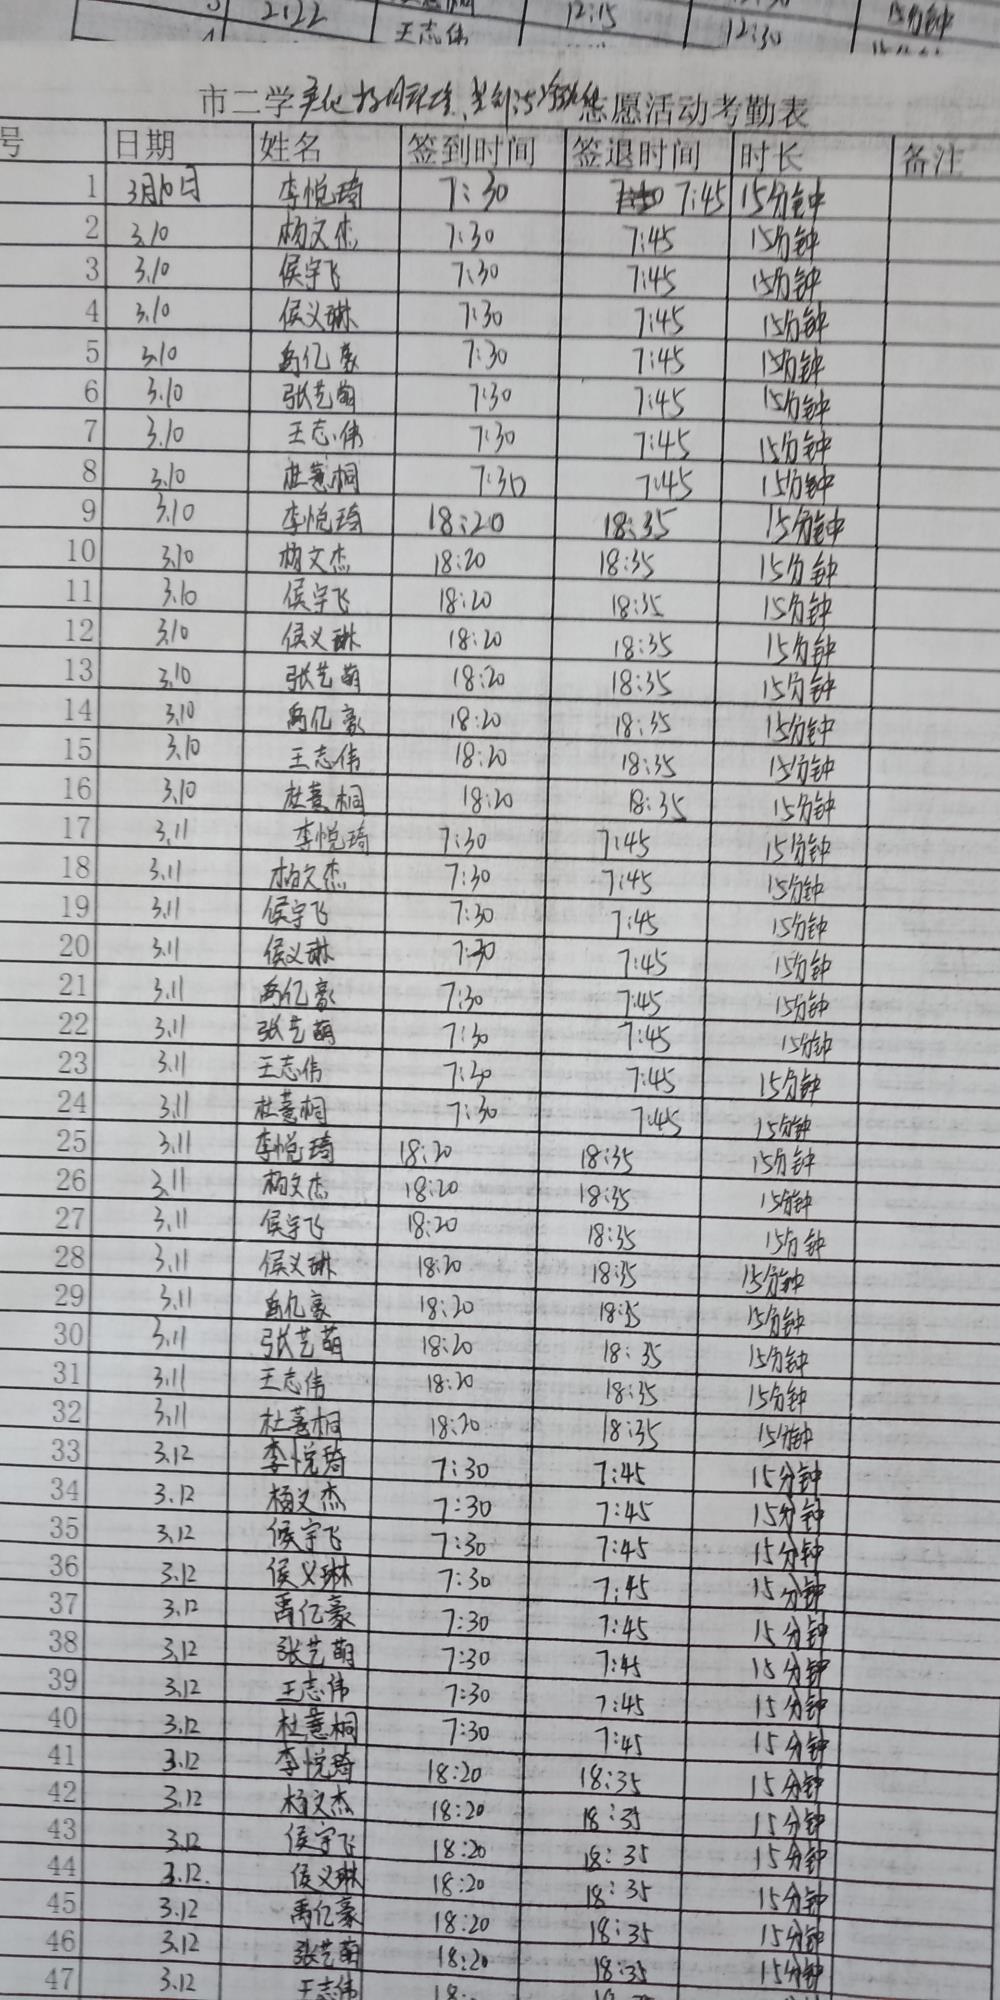 3 2:22 12:15 15分钟
王志伟 12:30
市二学 志愿活动考勤表
号 日期 姓名 签到时间 签退时间 时长 备注
1 3月10日 李悦琦 7:30 7:45 15分钟
2 3.10 杨文杰 7:30 7:45 15分钟
3 3.10 侯宇飞 7:30 7:45 15分钟
4 3.10 侯义琳 7:30 7:45 15分钟
5 3.10 禹亿豪 7:30 7:45 15分钟
6 3.10 张艺萌 7:30 7:45 15分钟
7 3.10 王志伟 7:30 7:45 15分钟
8 3.10 杜薏桐 7:30 7:45 15分钟
9 3.10 李悦琦 18:20 18:35 15分钟
10 3.10 杨文杰 18:20 18:35 15分钟
11 3.10 侯宇飞 18:20 18:35 15分钟
12 3.10 侯义琳 18:20 18:35 15分钟
13 3.10 张艺萌 18:20 18:35 15分钟
14 3.10 禹亿豪 18:20 18:35 15分钟
15 3.10 王志伟 18:20 18:35 15分钟
16 3.10 杜薏桐 18:20 18:35 15分钟
17 3.11 李悦琦 7:30 7:45 15分钟
18 3.11 杨文杰 7:30 7:45 15分钟
19 3.11 侯宇飞 7:30 7:45 15分钟
20 3.11 侯义琳 7:30 7:45 15分钟
21 3.11 禹亿豪 7:30 7:45 15分钟
22 3.11 张艺萌 7:30 7:45 15分钟
23 3.11 王志伟 7:30 7:45 15分钟
24 3.11 杜薏桐 7:30 7:45 15分钟
25 3.11 李悦琦 18:20 18:35 15分钟
26 3.11 杨文杰 18:20 18:35 15分钟
27 3.11 侯宇飞 18:20 18:35 15分钟
28 3.11 侯义琳 18:20 18:35 15分钟
29 3.11 禹亿豪 18:20 18:35 15分钟
30 3.11 张艺萌 18:20 18:35 15分钟
31 3.11 王志伟 18:20 18:35 15分钟
32 3.11 杜薏桐 18:20 18:35 15分钟
33 3.12 李悦琦 7:30 7:45 15分钟
34 3.12 杨文杰 7:30 7:45 15分钟
35 3.12 侯宇飞 7:30 7:45 15分钟
36 3.12 侯义琳 7:30 7:45 15分钟
37 3.12 禹亿豪 7:30 7:45 15分钟
38 3.12 张艺萌 7:30 7:45 15分钟
39 3.12 王志伟 7:30 7:45 15分钟
40 3.12 杜薏桐 7:30 7:45 15分钟
41 3.12 李悦琦 18:20 18:35 15分钟
42 3.12 杨文杰 18:20 18:35 15分钟
43 3.12 侯宇飞 18:20 18:35 15分钟
44 3.12. 侯义琳 18:20 18:35 15分钟
45 3.12 禹亿豪 18:20 18:35 15分钟
46 3.12 张艺萌 18:20 18:35 15分钟
47 3.12 王志伟 18: